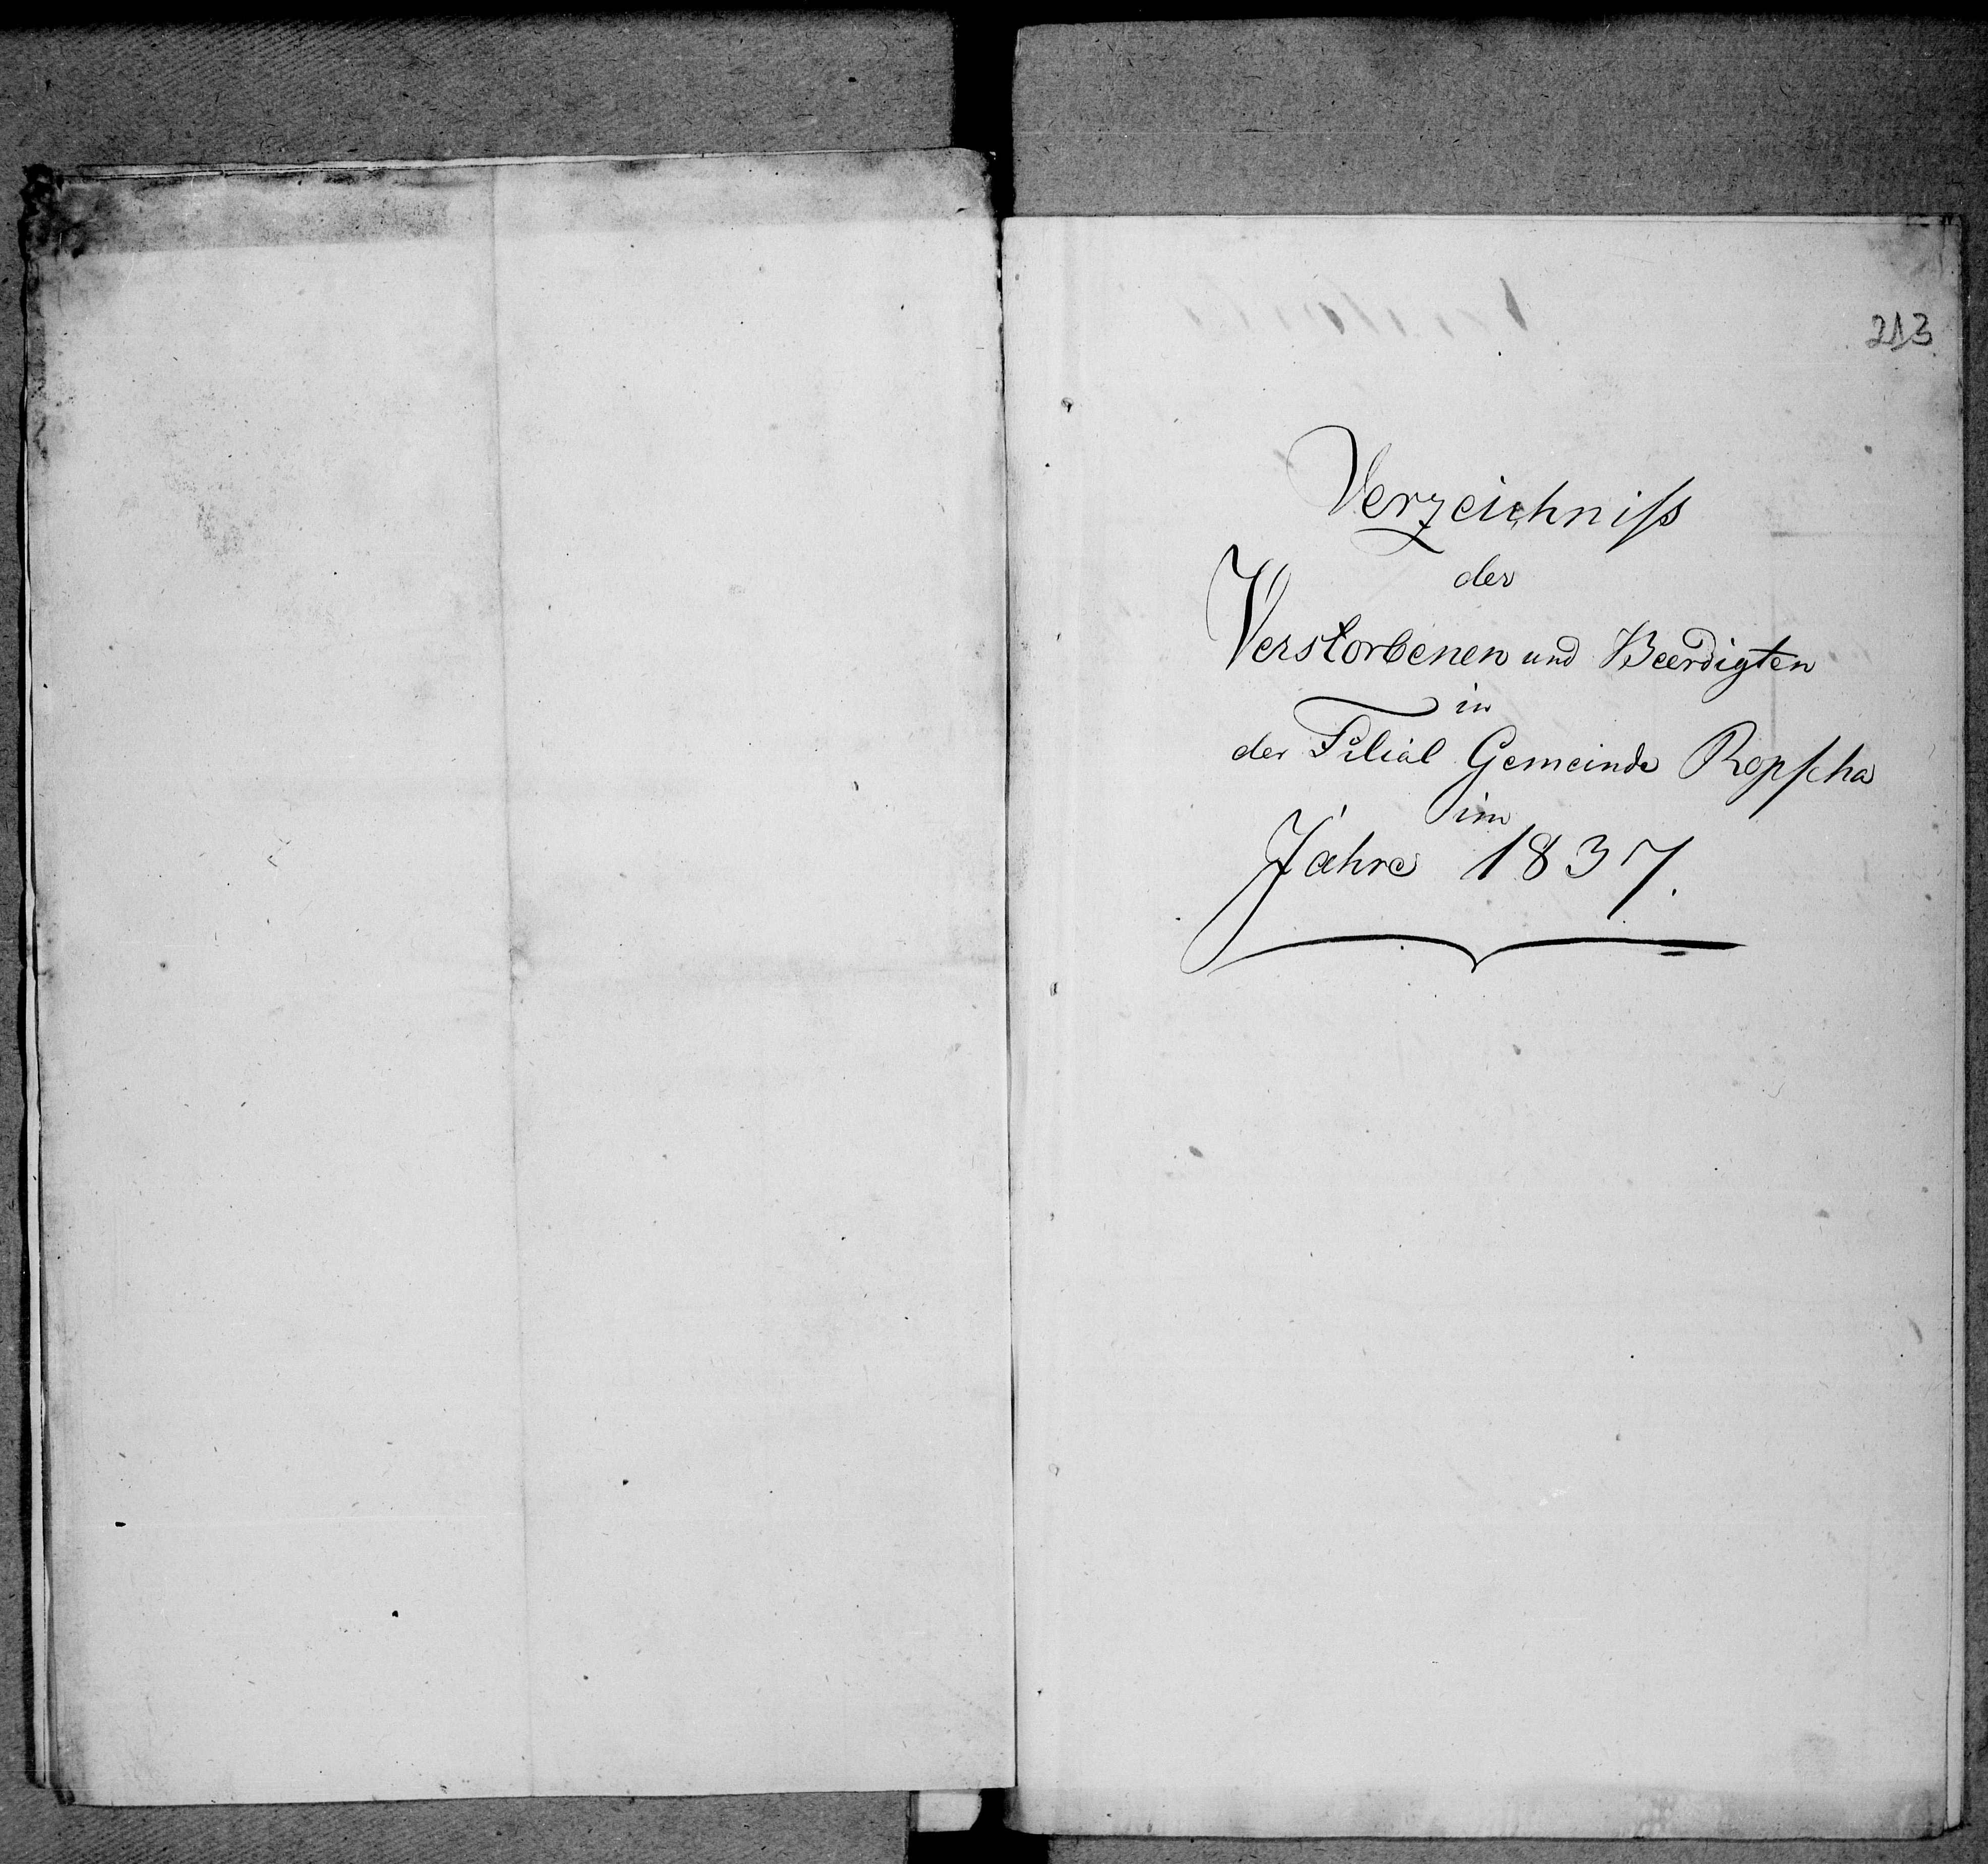 213
Verzeichniß
der
Verstorbenen und Beerdigten
in
der Filial Gemeinde Ropscha
im
Jahre 1837.